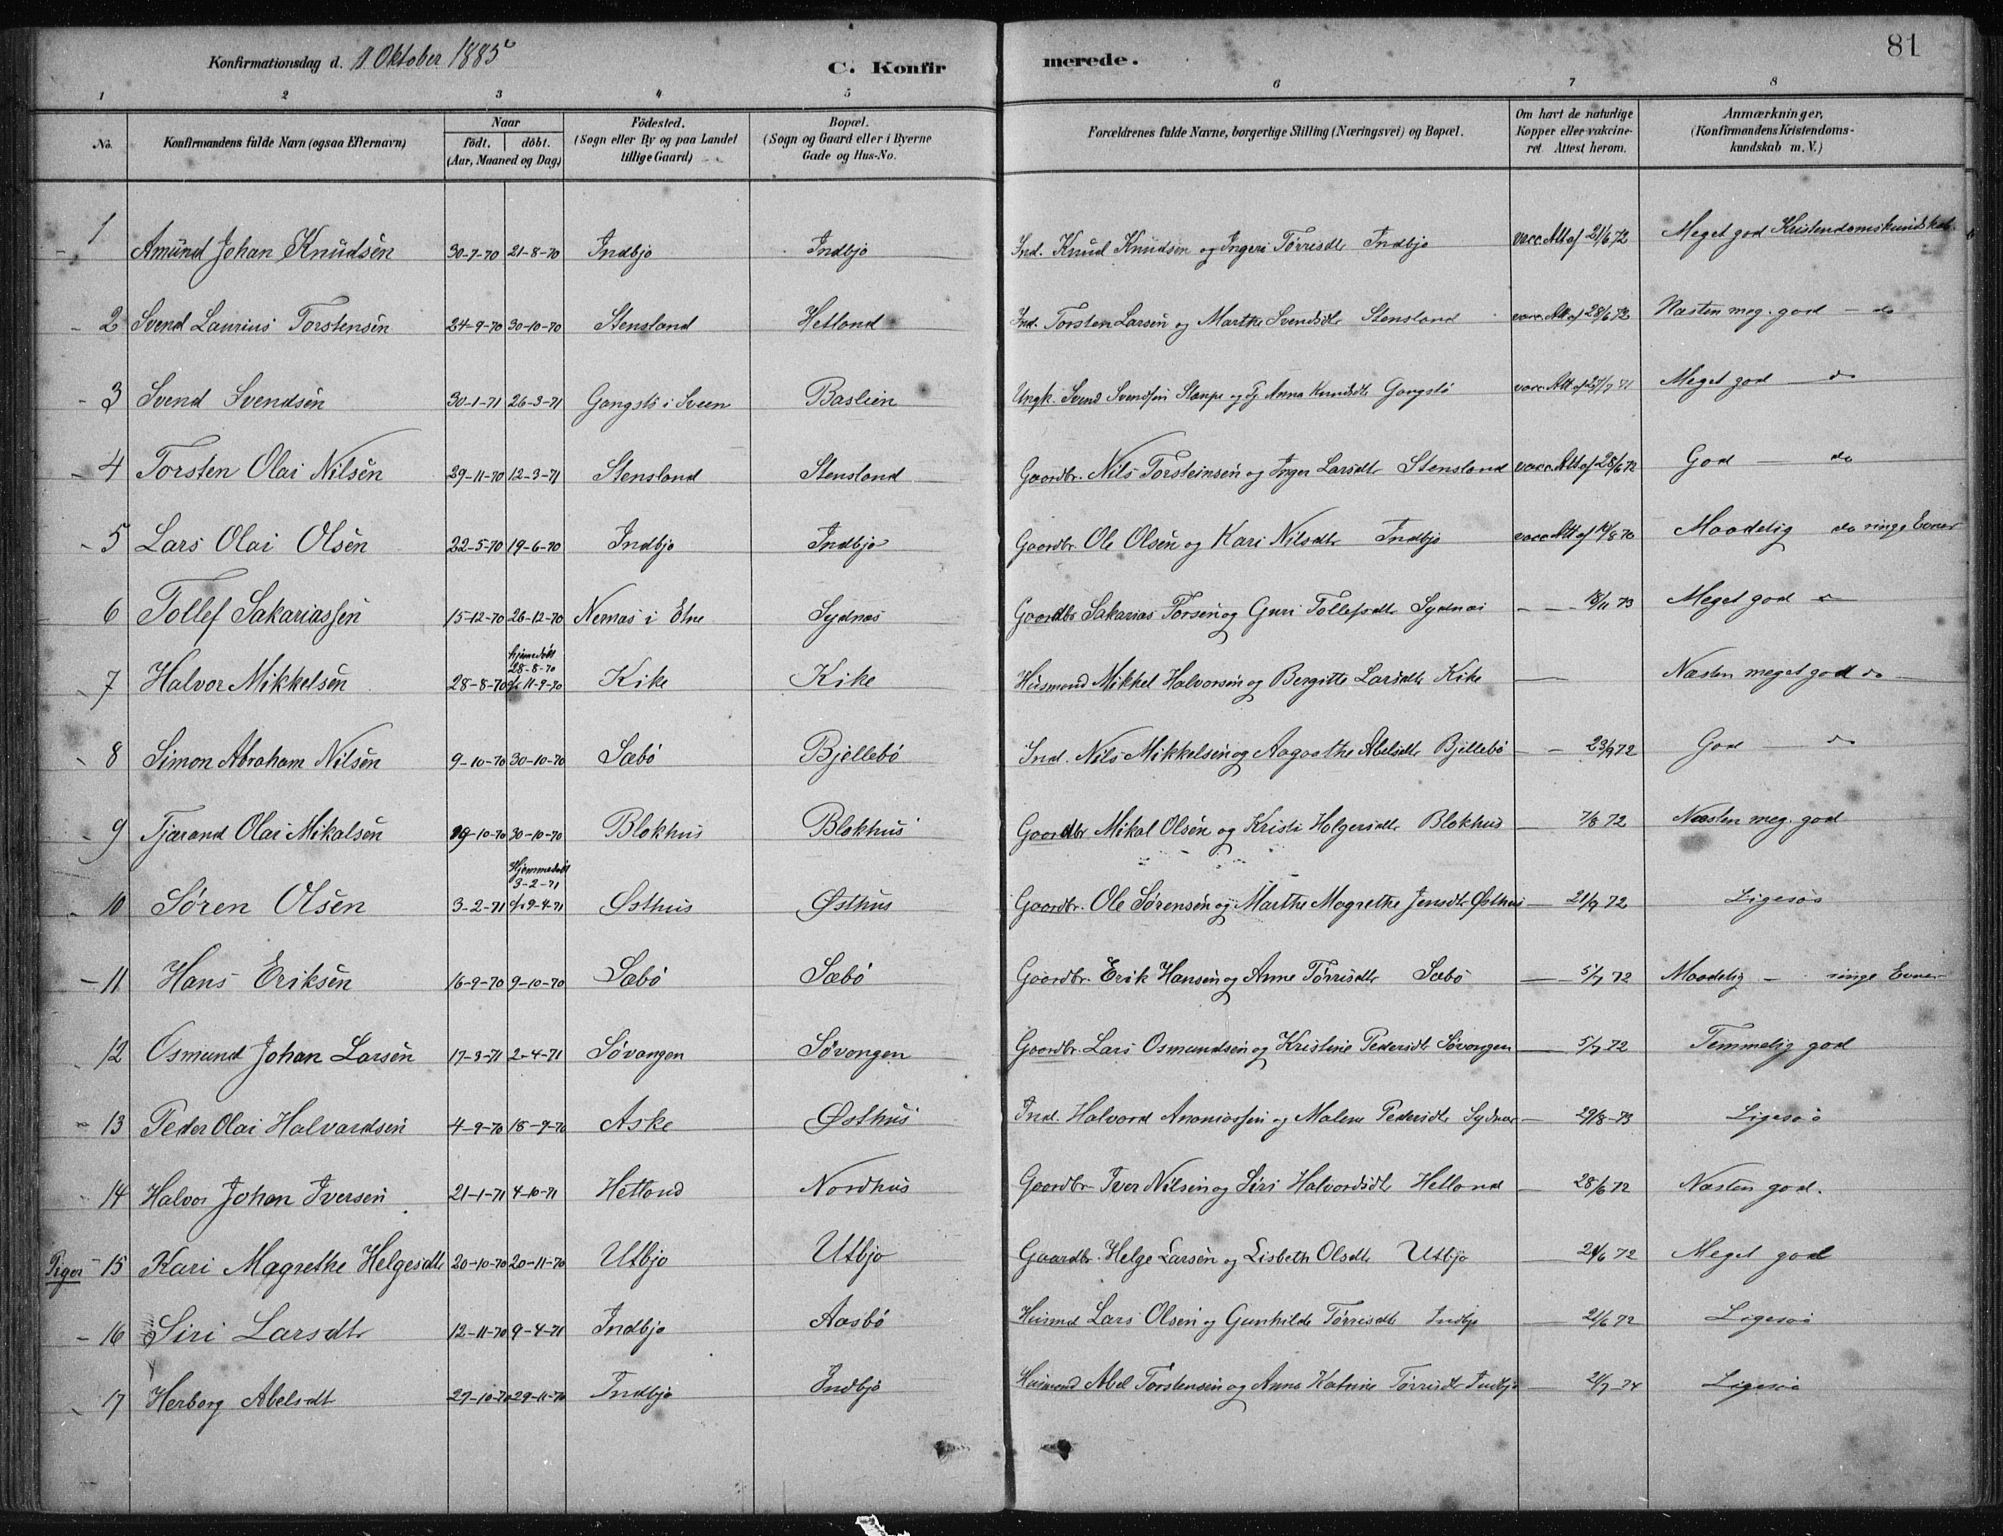 81
Konfirmationsdag d. 11 Oktober 1885
C. Konfirmerede.
1 2 3 4 5 6 7 8
No. Konfirmandens fulde Navn (ogsaa Efternavn) Naar födt. döbt. (Aar, Maaned og Dag) Födested. (Sogn eller By og paa Landet tillige Gaard) Bopæl. (Sogn og Gaard eller i Byerne Gade og Hus-No. Forældrenes fulde Navne, borgerlige Stilling (Næringsvei) og Bopæl. Om havt de naturlige Kopper eller vakcineret Attest herom. Anmærkninger, (Konfirmandens Kristendomskundskab m. V.)
1 Amund Johan Knudsen 30-7-70 21-8-70 Indbjo Indbjo Ind. Knud Knudsen og Ingeri Tørrisdtr Indbjo vacc. Att af 21/6 72 Meget god Kristendomskundskab
2 Svend Laurius Torstensen 24-9-70 30-10-70 Stensland Hetland Ind. Torsten Larsen og Marthe Svendsdtr Stensland vacc. Att af 28/6 72 Næsten meg. god – do
3 Svend Svendsen 30-1-71 26-3-71 Gangstö i Sveen Baslien Ungk. Svend Svendsen Stanpe og Pg Anna Knudsdtr Gangstö vacc. Att af 27/9 71 Meget god – do
4 Torsten Olai Nilsen 29-11-70 12-3-71 Stensland Stensland Gaardbr. Nils Torsteinsen og Inger Larsdtr Stensland vacc. Att af 28/6 72 God – do
5 Lars Olai Olsen 22-5-70 19-6-70 Indbjo Indbjo Gaardbr. Ole Olsen og Kari Nilsdtr Indbjo vacc. Att af 14/8 70 Maadelig do ringe Evner
6 Tollef Sakariassen 15-12-70 26-12-70 Nernæs i Etne Sydnæs Gaardbr Sakarias Torsen og Guri Tollefsdtr Sydnæs – – 18/11 73 Meget god do
7 Halvor Mikkelsen 28-8-70 hjemedöbt 28-8-70 c/o 11-9-70 Kike Kike Husmand Mikkel Halvorsen og Bergitte Larsdtr Kike – Næsten meget god do –
8 Simon Abraham Nilsen 9-10-70 30-10-70 Sæbö Bjellebö Ind. Nils Mikkelsen og Aagoathe Abelsdtr Bjellebö – – 23/9 72 God do
9 Tjærand Olai Mikalsen 19-10-70 30-10-70 Blokhus Blokhus Gaardbr Mikal Olsen og Kristi Holgersdtr Blokhus – 7/8 72 Næsten meg. god
10 Søren Olsen 3-2-71 Hjemmedöbt 3-2-71 c/o 9-4-71 Østhus Østhus Gaardbr. Ole Sørensen og Marthe Magrethe Jensdtr Østhus – 21/9 72 Ligesaa
11 Hans Eriksen 16-9-70 9-10-70 Sæbö Sæbö Gaardbr. Erik Hansen og Anne Tørrisdtr Sæbö – 5/7 72 Maadelig – ringe Evner
12 Osmund Johan Larsen 17-3-71 2-4-71 Søvangen Søvangen Gaardbr. Lars Osmundsen og Kristine Pedersdtr Søvangen – 5/7 72 Temmelig god
13 Peder Olai Halvardsen 4-9-70 18-9-70 Aske Østhus Ind. Halvard Ananiassen og Malene Pedersdtr Sydnæs – 29/8-73 Ligesaa
14 Halvor Johan Iversen 21-1-71 4-10-71 Hetland Nordhus Gaardbr Iver Nilsen og Siri Halvordsdtr Hetland – 28/6 72 Næsten god.
Piger 15 Kari Magrethe Helgesdtr 20-10-70 20-11-70 Utbjo Utbjo Gaardbr. Helge Larsen og Lisbeth Olsdtr Utbjo – 21/6 72 Meget god
16 Siri Larsdtr 12-11-70 9-4-71 Indbjo Aasbö Husmd Lars Olsen og Gunhilde Tørrisdtr Indbjo – 21/6 72 Ligesaa
17 Herborg Abelsdtr 27-10-70 29-11-70 Indbjo Indbjo Husmand Abel Torstensen og Anna Katrine Tørrisdtr Indbjo – 21/7-74 Ligesaa